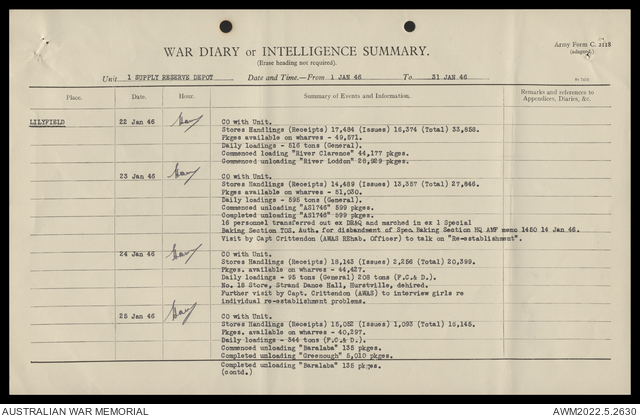 Army Form C. 2118
(adapted.)
WAR DIARY or INTELLIGENCE SUMMARY.
(Erase heading not required).
Unit 1 SUPPLY RESERVE DEPOT Date and Time.—From 1 JAN 46 To 31 JAN 46
Place. Date. Hour. Summary of Events and Information. Remarks and references to
Appendices, Diaries, &c.
LILYFIELD 22 Jan 46 CO with Unit.
Stores Handlings (Receipts) 17,484 (Issues) 16,374 (Total) 33,858.
Pkges available on wharves - 49,571.
Daily loadings - 516 tons (General).
Commenced loading "River Clarence" 44,177 pkges.
Commenced unloading "River Loddon" 28,929 pkges.
23 Jan 46 CO with Unit.
Stores Handlings (Receipts) 14,489 (Issues) 13,357 (Total) 27,846.
Pkges available on wharves - 51,030.
Daily loadings - 595 tons (General).
Commenced unloading "AS1746" 599 pkges.
Completed unloading "AS1746" 599 pkges.
16 personnel transferred out ex DR&Q and marched in ex 1 Special
Baking Section TOS. Auth. for disbandment of Spec Baking Section HQ AMF memo 1450 14 Jan 46.
Visit by Capt Crittendon (AWAS REhab. Officer) to talk on "Re-establishment".
24 Jan 46 CO with Unit.
Stores Handlings (Receipts) 18,143 (Issues) 2,256 (Total) 20,399.
Pkges. available on wharves - 44,427.
Daily loadings - 95 tons (General) 208 tons (F.C.& D.).
No. 18 Store, Strand Dance Hall, Hurstville, dehired.
Further visit by Capt. Crittendon (AWAS) to interview girls re
individual re-establishment problems.
25 Jan 46 CO with Unit.
Stores Handlings (Receipts) 15,052 (Issues) 1,093 (Total) 16,145.
Pkges. available on wharves - 40,297.
Daily loadings - 344 tons (F.C.& D.).
Commenced unloading "Baralaba" 135 pkges.
Completed unloading "Greenough" 5,010 pkges.
Completed unloading "Baralaba" 135 pkges.
(contd.)
AUSTRALIAN WAR MEMORIAL AWM2022.5.2630